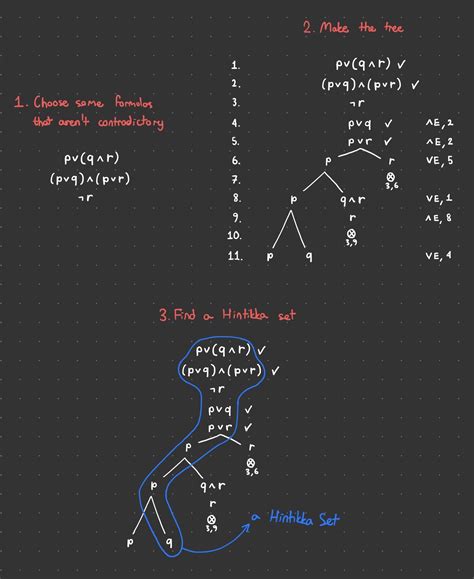 1. Choose some formulas
that aren't contradictory
p∨(q∧r)
(p∨q)∧(p∨r)
¬r
2. Make the tree
1. p∨(q∧r) ✓
2. (p∨q)∧(p∨r) ✓
3. ¬r
4. p∨q ✓ ∧E, 2
5. p∨r ✓ ∧E, 2
6. p r ∨E, 5
7. ⊗ 3,6
8. p q∧r ∨E, 1
9. r ∧E, 8
10. ⊗ 3,9
11. p q ∨E, 4
3. Find a Hintikka set
p∨(q∧r) ✓
(p∨q)∧(p∨r) ✓
¬r
p∨q ✓
p∨r ✓
p r
⊗ 3,6
p q∧r
r
⊗ 3,9
p q
a Hintikka Set